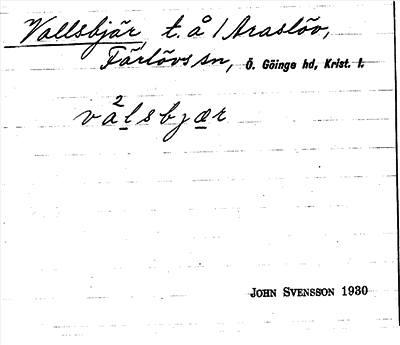 Vallsbjär, t. å 1 Araslöv,
Färlövs sn, Ö. Göinge hd, Krist. l.
va²lsbjær
JOHN SVENSSON 1930